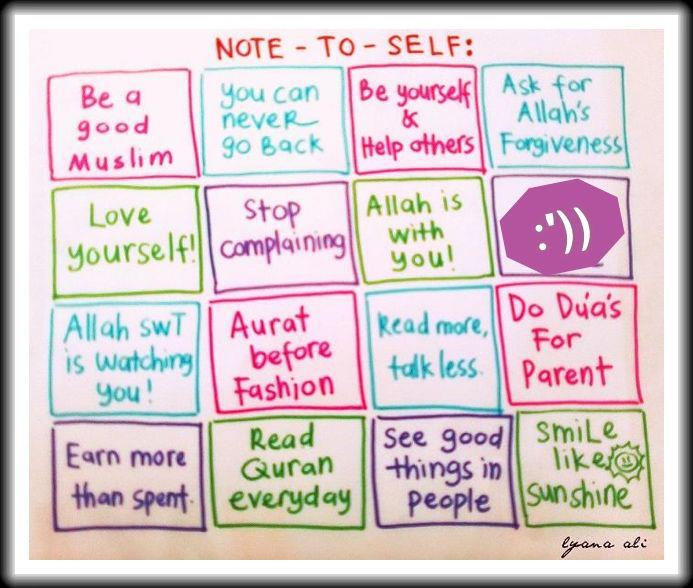 NOTE - TO - SELF:
Be a
good
Muslim
you can
never
go Back
Be yourself
&
Help others
Ask for
Allah's
Forgiveness
Love
yourself!
Stop
complaining
Allah is
with
you!
:'))
Allah swT
is watching
you!
Aurat
before
Fashion
Read more,
talk less.
Do Du'a's
For
Parent
Earn more
than spent.
Read
Quran
everyday
See good
things in
people
SmiLe
like
sunshine
lyana ali